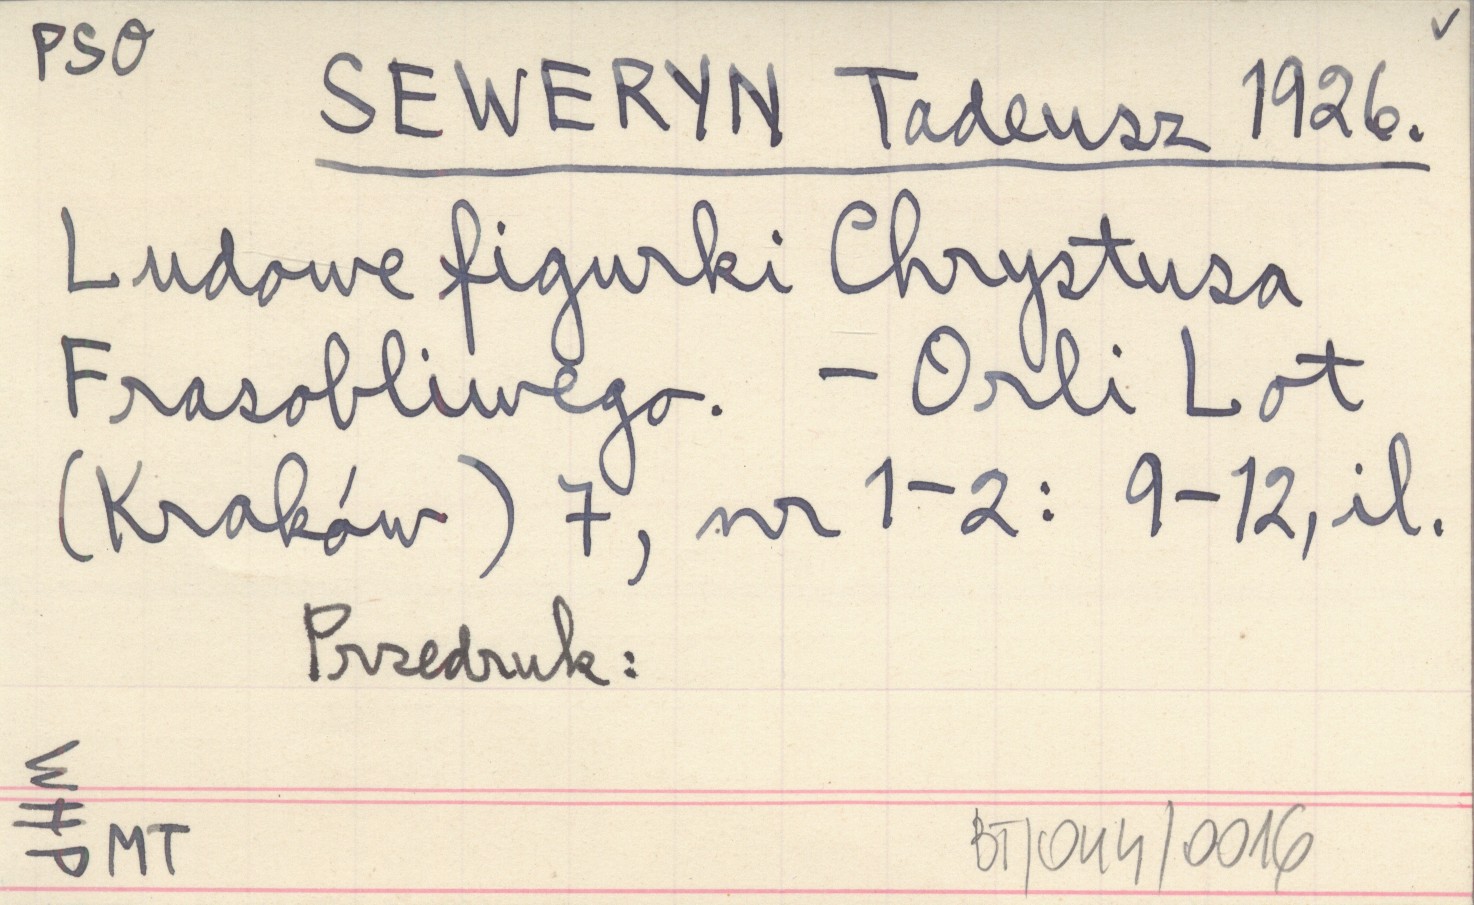 PSO
✓
SEWERYN Tadeusz 1926.
Ludowe figurki Chrystusa
Frasobliwego. – Orli Lot
(Kraków) 7, nr 1–2: 9–12, il.
Przedruk:
MT
BT/044/0016